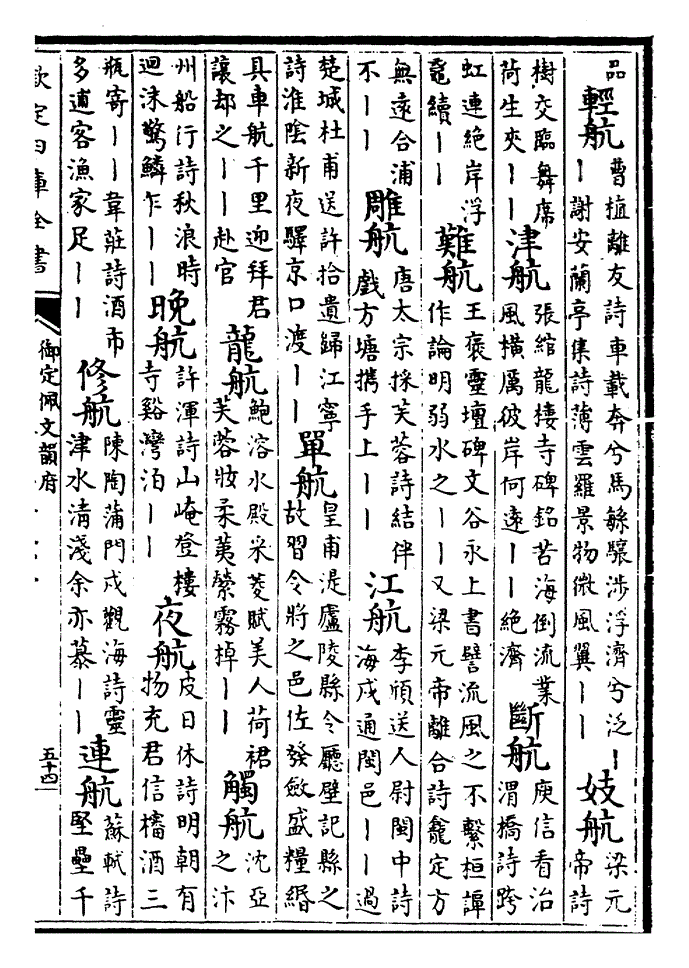 品輕航曹植離友詩車載奔兮馬繇驤涉浮濟兮泛丨丨謝安蘭亭集詩薄雲羅景物微風翼丨丨妓航梁元帝詩
樹交臨舞席荷生夾丨丨津航張綰龍樓寺碑銘苦海倒流業風橫厲彼岸何遠丨丨絶濟斷航庾信看治渭橋詩跨
虹連絶岸浮黿續丨丨難航王褒靈壇碑文谷永上書譬流風之不繫桓譚作論明弱水之丨丨又梁元帝離合詩龕定方
無遠合浦不丨丨雕航唐太宗採芙蓉詩結伴戲方塘攜手上丨丨江航李頎送人尉閩中詩海戍通閩邑丨丨過
楚城杜甫送許拾遺歸江寧詩淮陰新夜驛京口渡丨丨單航皇甫湜廬陵縣令廳壁記縣之故習令將之邑佐發斂盛糧緡
具車航千里迎拜君讓却之丨丨赴官龍航鮑溶水殿采菱賦美人荷裙芙蓉妝柔荑縈霧掉丨丨觸航沈亞之汴
州船行詩秋浪時迴沫驚鱗乍丨丨晚航許渾詩山崦登樓寺谿灣泊丨丨夜航皮日休詩明朝有物充君信㰂酒三
瓶寄丨丨韋莊詩酒市多逋客漁家足丨丨修航陳陶蒲門戍觀海詩靈津水清淺余亦慕丨丨連航蘇軾詩堅壘千
欽定四庫全書
御定佩文韻府
五十四